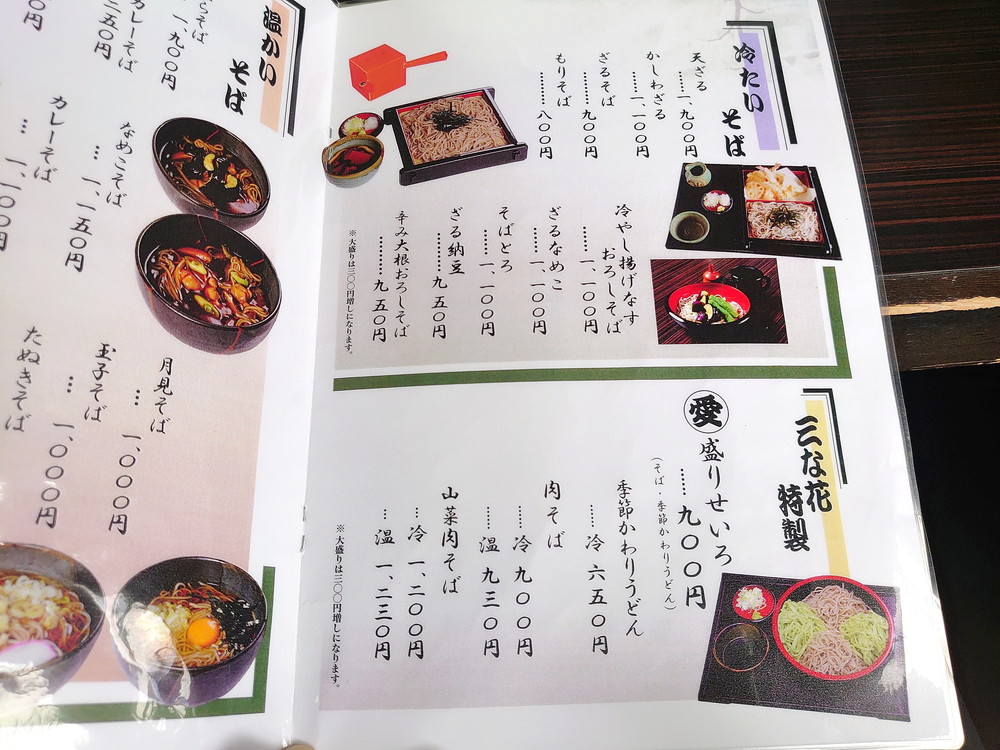 冷たい
そば
天ざる
……一、九〇〇円
かしわざる
……一、一〇〇円
ざるそば
………九〇〇円
もりそば
………八〇〇円
冷やし揚げなす
おろしそば
……一、一〇〇円
ざるなめこ
……一、一〇〇円
そばとろ
……一、一〇〇円
ざる納豆
………九五〇円
辛み大根おろしそば
………九五〇円
※大盛りは三〇〇円増しになります。
三な花
特製
愛 盛りせいろ
……九〇〇円
(そば・季節かわりうどん)
季節かわりうどん
……冷 六五〇円
肉そば
……冷 九〇〇円
……温 九三〇円
山菜肉そば
…冷 一、二〇〇円
…温 一、二三〇円
※大盛りは三〇〇円増しになります。
温かい
そば
らそば
一、九〇〇円
カレーそば
二五〇円
〇円
なめこそば
… 一、一五〇円
カレーそば
… 一、一〇〇円
〇円
月見そば
… 一、〇〇〇円
玉子そば
… 一、〇〇〇円
たぬきそば